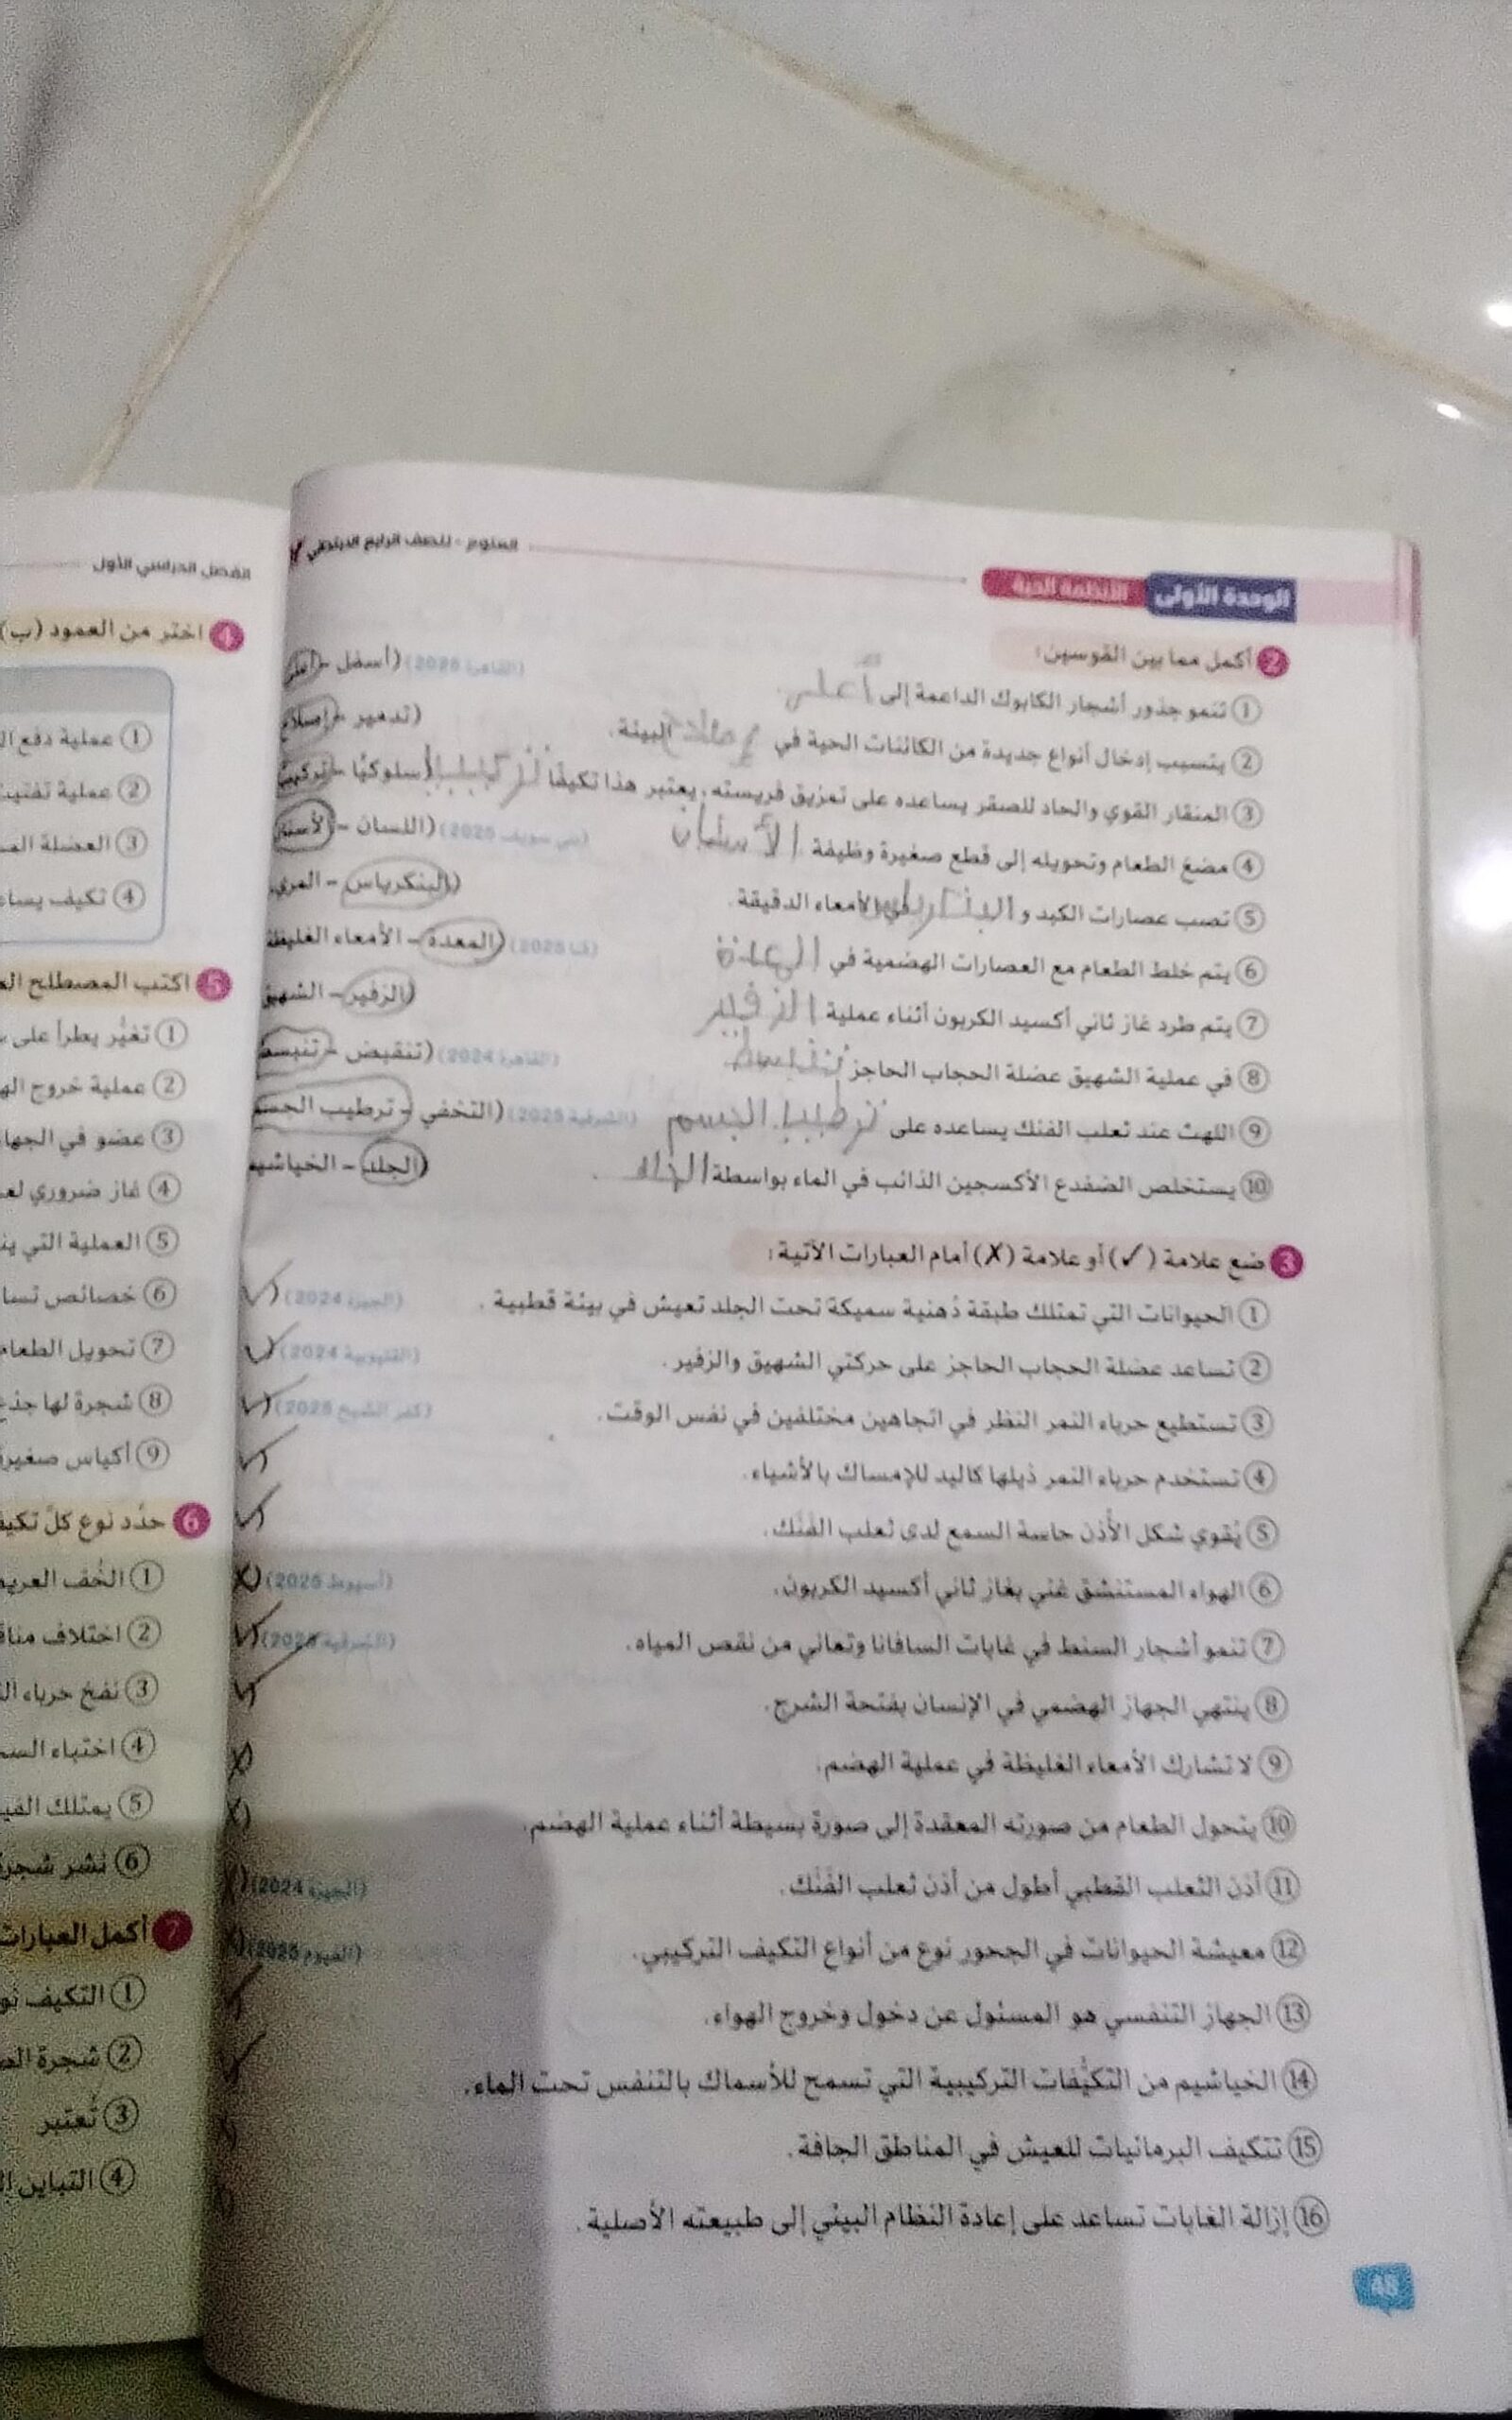 العلوم - للصف الرابع الابتدائي
الوحدة الأولى الأنظمة الحية
2 أكمل مما بين القوسين:
1 تنمو جذور أشجار الكابوك الداعمة إلى أعلى. (القاهرة 2025) (أسفل - أعلى
2 يتسبب إدخال أنواع جديدة من الكائنات الحية في إصلاح البيئة. (تدمير - إصلاح
3 المنقار القوي والحاد للصقر يساعده على تمزيق فريسته، يعتبر هذا تكيفًا تركيبيا (سلوكيًا - تركيبيًا
4 مضغ الطعام وتحويله إلى قطع صغيرة وظيفة الأسنان (بني سويف 2025) (اللسان - الأسنان
5 تصب عصارات الكبد و البنكرياس في الأمعاء الدقيقة. (البنكرياس - المريء
6 يتم خلط الطعام مع العصارات الهضمية في المعدة (قنا 2025) (المعدة - الأمعاء الغليظة
7 يتم طرد غاز ثاني أكسيد الكربون أثناء عملية الزفير (الزفير - الشهيق
8 في عملية الشهيق عضلة الحجاب الحاجز تنبسط (القاهرة 2024) (تنقبض - تنبسط
9 اللهث عند ثعلب الفنك يساعده على ترطيب الجسم (الشرقية 2025) (التخفي - ترطيب الجسم
10 يستخلص الضفدع الأكسجين الذائب في الماء بواسطة الجلد. (الجلد - الخياشيم
3 ضع علامة (✓) أو علامة (X) أمام العبارات الآتية:
1 الحيوانات التي تمتلك طبقة دُهنية سميكة تحت الجلد تعيش في بيئة قطبية. (الجيزة 2024) (✓
2 تساعد عضلة الحجاب الحاجز على حركتي الشهيق والزفير. (القليوبية 2024) (✓
3 تستطيع حرباء النمر النظر في اتجاهين مختلفين في نفس الوقت. (كفر الشيخ 2025) (✓
4 تستخدم حرباء النمر ذيلها كاليد للإمساك بالأشياء. (✓
5 يُقوي شكل الأُذن حاسة السمع لدى ثعلب الفَنَك. (✓
6 الهواء المستنشق غني بغاز ثاني أكسيد الكربون. (أسيوط 2025) (X
7 تنمو أشجار السنط في غابات السافانا وتعاني من نقص المياه. (الشرقية 2025) (✓
8 ينتهي الجهاز الهضمي في الإنسان بفتحة الشرج. (✓
9 لا تشارك الأمعاء الغليظة في عملية الهضم. (X
10 يتحول الطعام من صورته المعقدة إلى صورة بسيطة أثناء عملية الهضم. (X
11 أذن الثعلب القطبي أطول من أذن ثعلب الفَنَك. (الجيزة 2024)
12 معيشة الحيوانات في الجحور نوع من أنواع التكيف التركيبي. (الفيوم 2025) (X
13 الجهاز التنفسي هو المسئول عن دخول وخروج الهواء. ✓
14 الخياشيم من التكيُّفات التركيبية التي تسمح للأسماك بالتنفس تحت الماء. ✓
15 تتكيف البرمائيات للعيش في المناطق الجافة.
16 إزالة الغابات تساعد على إعادة النظام البيئي إلى طبيعته الأصلية.
48
الفصل الدراسي الأول
4 اختر من العمود (ب)
1 عملية دفع
2 عملية تفتيت
3 العضلة
4 تكيف
5 اكتب المصطلح
1 تغيُّر يطرأ على
2 عملية خروج
3 عضو في
4 غاز ضروري
5 العملية التي
6 خصائص
7 تحويل الطعام
8 شجرة لها
9 أكياس صغيرة
6 حدِّد نوع كلّ
1 الخُف
2 اختلاف
3 نفخ حرباء
4 اختباء
5 يمتلك
6 نشر
7 أكمل العبارات
1 التكيف
2 شجرة
3 تُعتبر
4 التباين